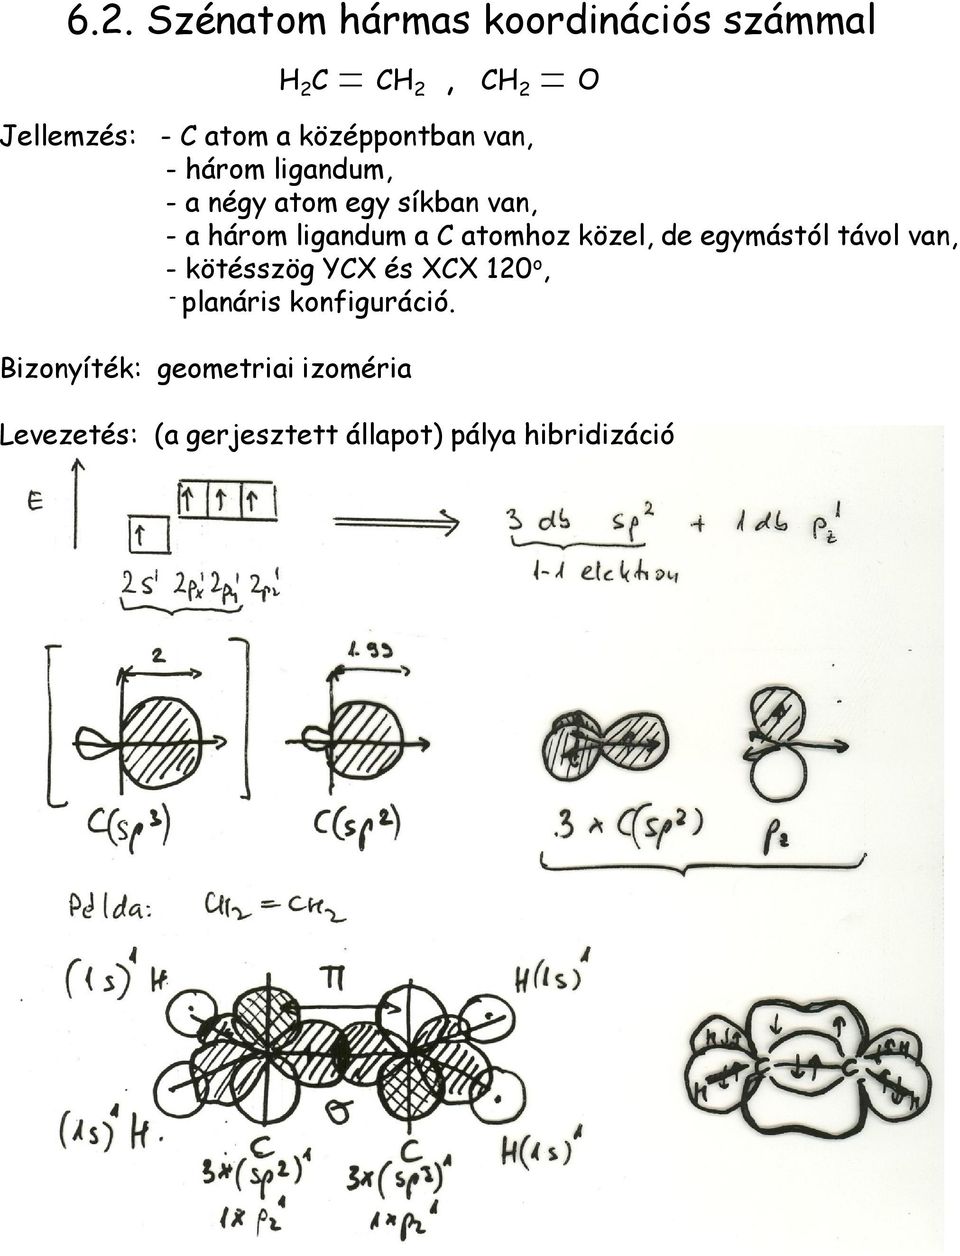 6.2. Szénatom hármas koordinációs számmal
H₂C = CH₂ , CH₂ = O
Jellemzés: - C atom a középpontban van,
- három ligandum,
- a négy atom egy síkban van,
- a három ligandum a C atomhoz közel, de egymástól távol van,
- kötésszög YCX és XCX 120°,
- planáris konfiguráció.
Bizonyíték: geometriai izoméria
Levezetés: (a gerjesztett állapot) pálya hibridizáció
E ↑ ↑ ↑ ↑ ⟹ 3 db sp² + 1 db p_z¹
2s¹ 2p_x¹ 2p_y¹ 2p_z¹ 1-1 elektron
2 1.99
C(sp³) C(sp²) 3 × C(sp²) p_z
Példa: CH₂ = CH₂
(1s)¹ H π H(1s)¹
H C C H
H H
σ
(1s)¹ H. C C H(1s)¹
3×(sp²)¹ 3×(sp²)¹
1× p_z¹ 1×p_z¹